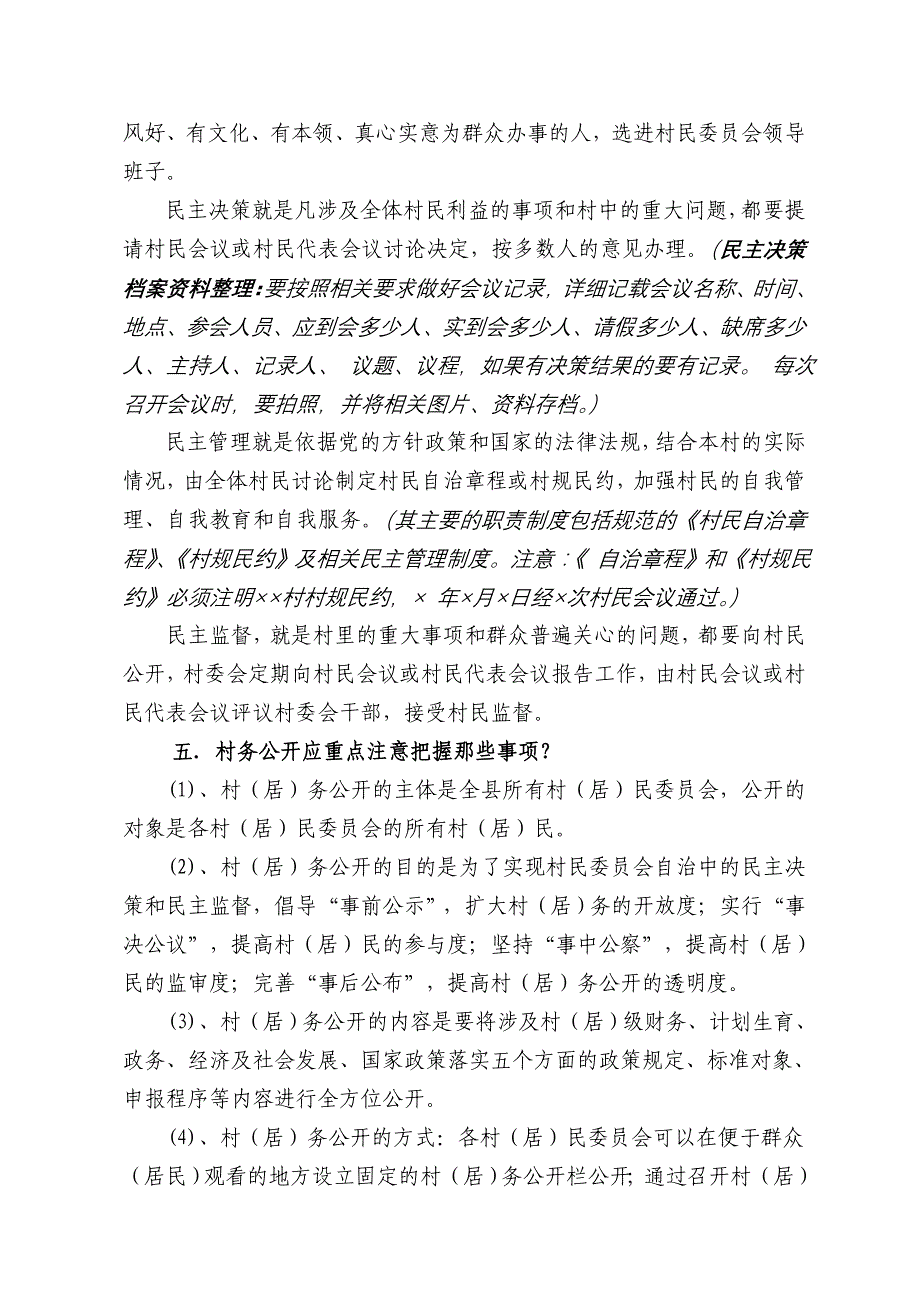 风好、有文化、有本领、真心实意为群众办事的人，选进村民委员会领导
班子。
民主决策就是凡涉及全体村民利益的事项和村中的重大问题，都要提
请村民会议或村民代表会议讨论决定，按多数人的意见办理。（民主决策
档案资料整理：要按照相关要求做好会议记录，详细记载会议名称、时间、
地点、参会人员、应到会多少人、实到会多少人、请假多少人、缺席多少
人、主持人、记录人、 议题、议程，如果有决策结果的要有记录。 每次
召开会议时，要拍照，并将相关图片、资料存档。）
民主管理就是依据党的方针政策和国家的法律法规，结合本村的实际
情况，由全体村民讨论制定村民自治章程或村规民约，加强村民的自我管
理、自我教育和自我服务。（其主要的职责制度包括规范的《村民自治章
程》、《村规民约》及相关民主管理制度。注意：《 自治章程》和《村规民
约》必须注明××村村规民约，× 年×月×日经×次村民会议通过。）
民主监督，就是村里的重大事项和群众普遍关心的问题，都要向村民
公开，村委会定期向村民会议或村民代表会议报告工作，由村民会议或村
民代表会议评议村委会干部，接受村民监督。
五．村务公开应重点注意把握那些事项？
(1)、村（居）务公开的主体是全县所有村（居）民委员会，公开的
对象是各村（居）民委员会的所有村（居）民。
(2)、村（居）务公开的目的是为了实现村民委员会自治中的民主决
策和民主监督，倡导“事前公示”，扩大村（居）务的开放度；实行“事
决公议”，提高村（居）民的参与度；坚持“事中公察”，提高村（居）
民的监审度；完善“事后公布”，提高村（居）务公开的透明度。
(3)、村（居）务公开的内容是要将涉及村（居）级财务、计划生育、
政务、经济及社会发展、国家政策落实五个方面的政策规定、标准对象、
申报程序等内容进行全方位公开。
(4)、村（居）务公开的方式：各村（居）民委员会可以在便于群众
（居民）观看的地方设立固定的村（居）务公开栏公开；通过召开村（居）